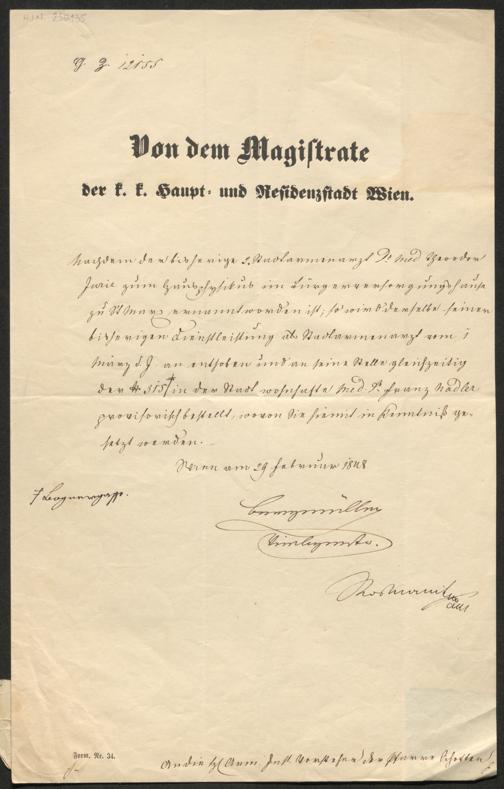 G. Z. 12155
Von dem Magiſtrate
der k. k. Haupt- und Reſidenzſtadt Wien.
Nachdem der bisherige Stadtarmenarzt Dr Med Theodor
zum Hausphysikus im Bürgerversorgungshause
zu St Marx ernannt worden ist; so wird derselbe seiner
bisherigen Dienstleistung als Stadtarmenarzt vom 1
März d. J. an enthoben und an seine Stelle gleichzeitig
der # 315† in der Stadt wohnhafte Med Dr. Franz Nadler
provisorisch bestellt, wovon Sie hiemit in Kenntniß ge-
setzt werden.
Wien am 29 Februar 1848
† Bognergasse.
Bergmüller
Form. Nr. 34.
An die Arm. Inst. Vorsteher der Pfarre Schotten